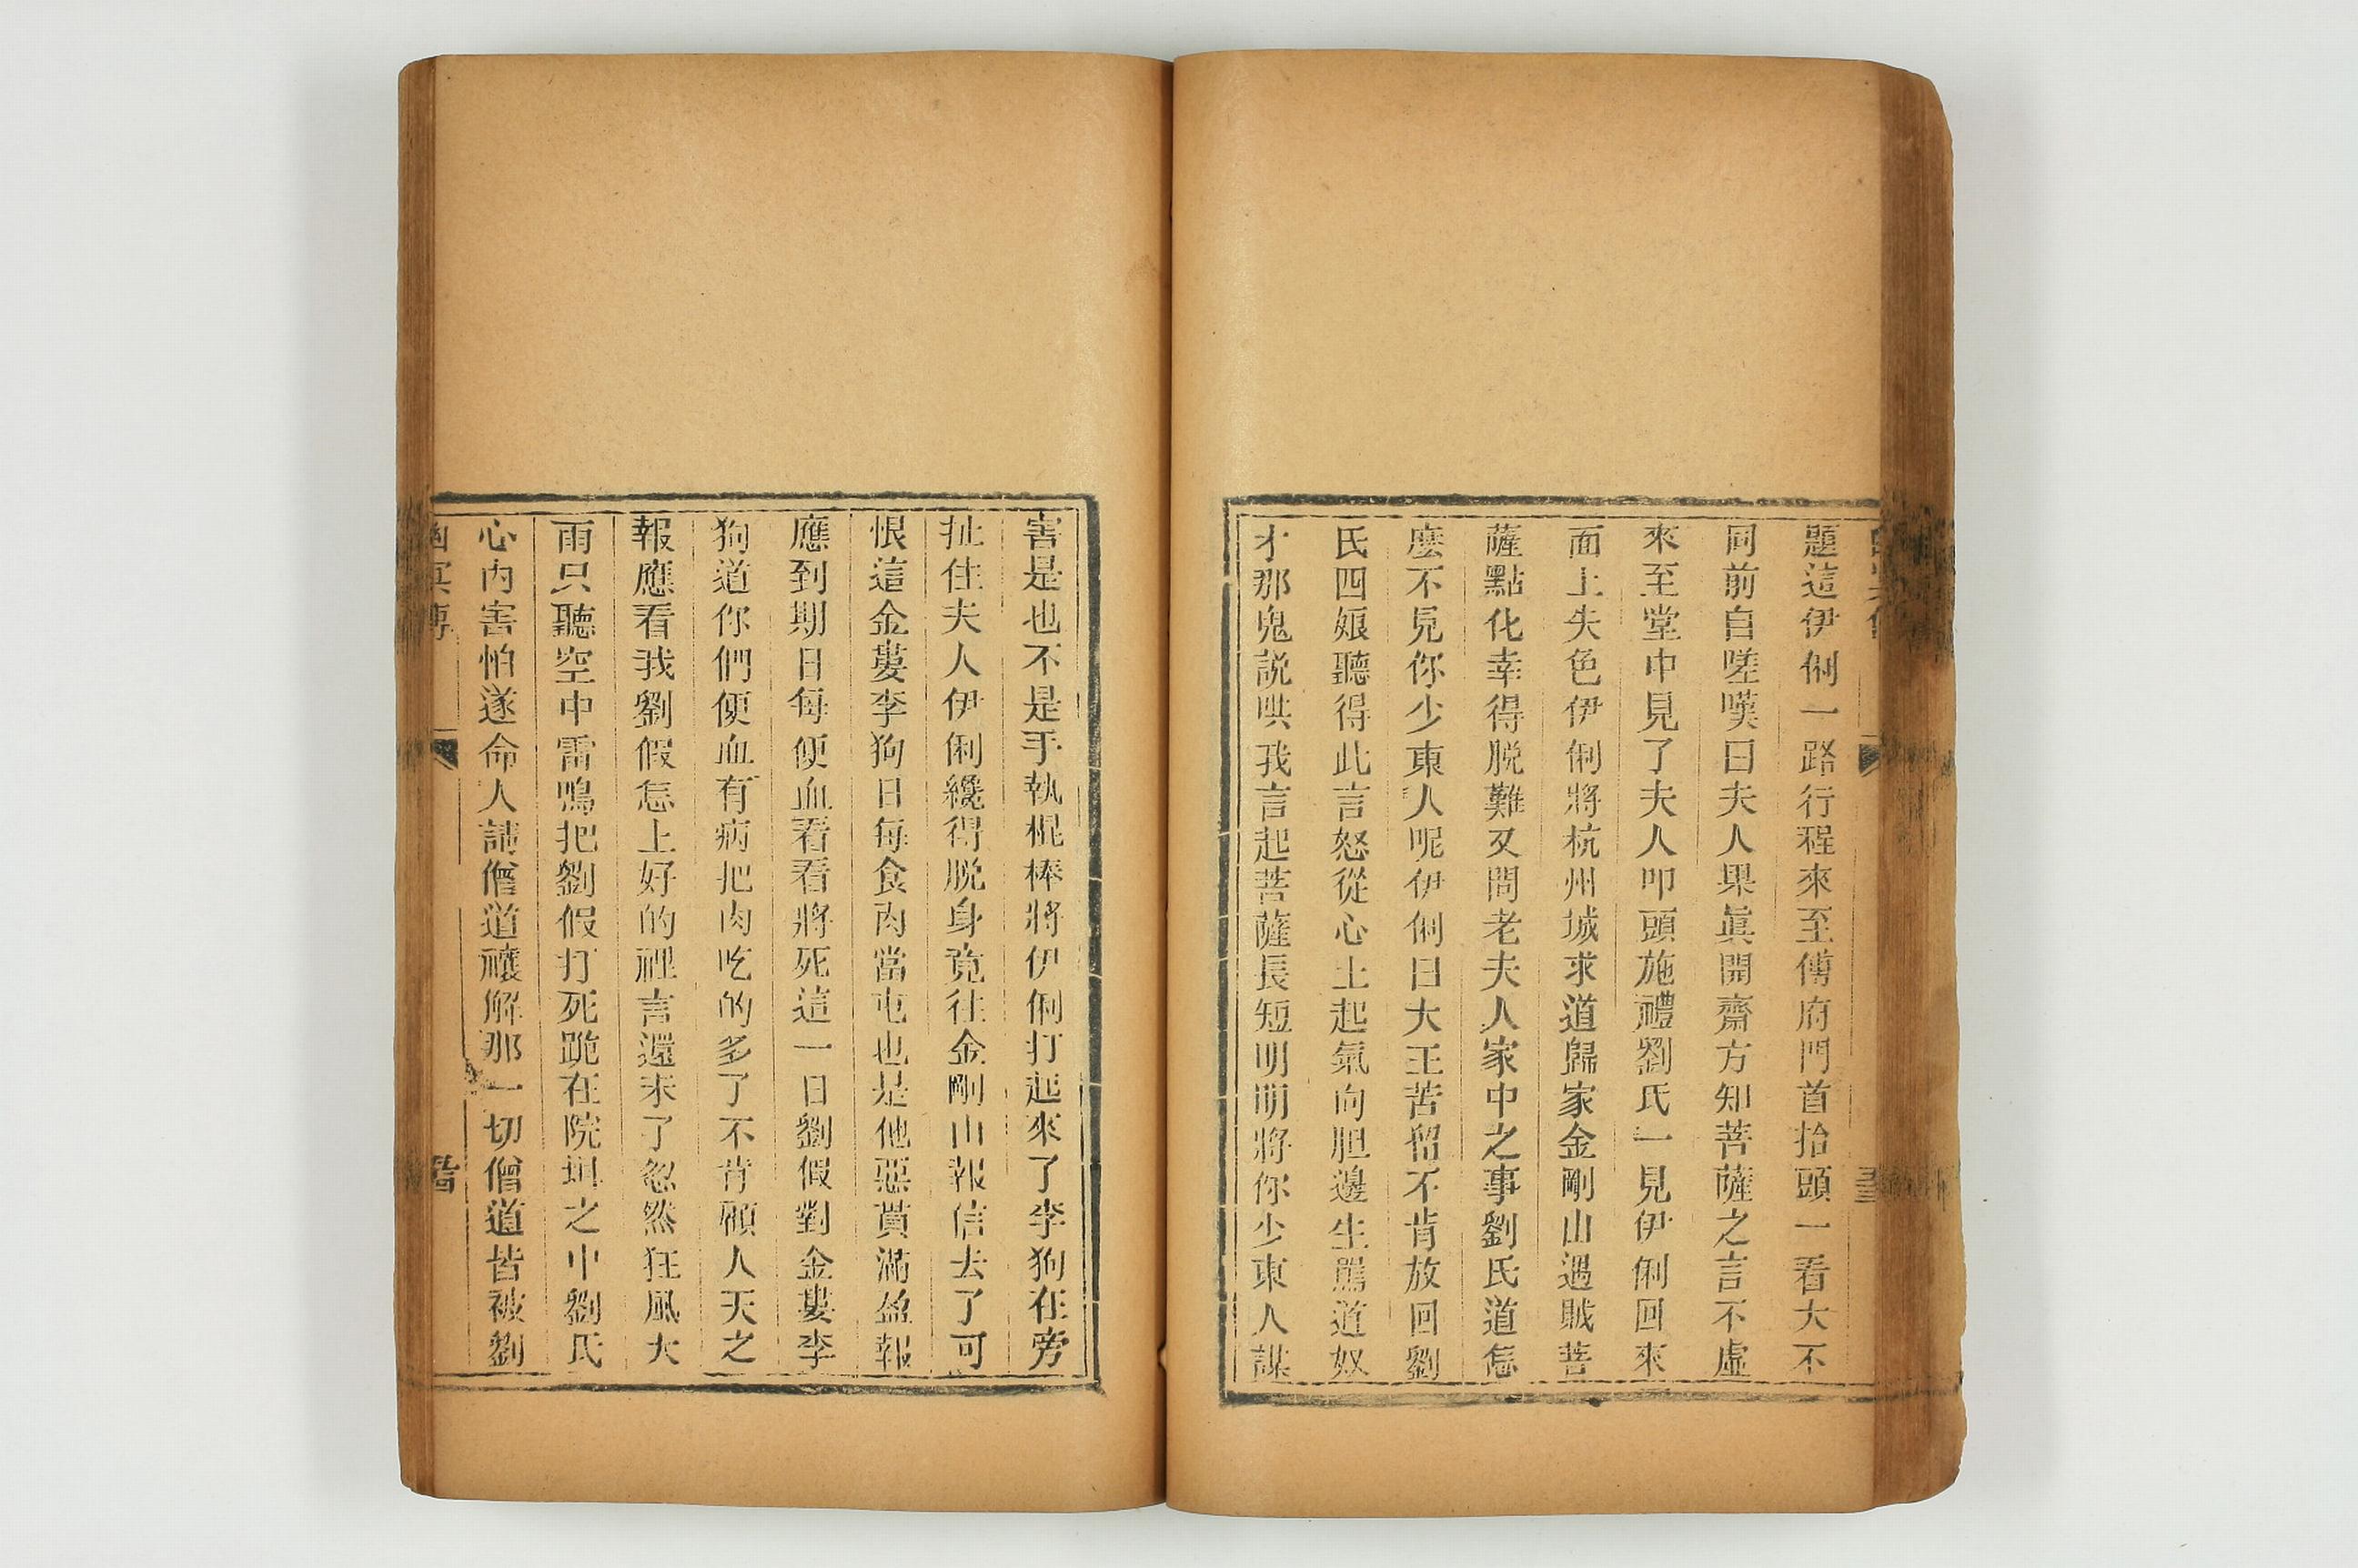 題這伊俐一路行程來至傅府門首抬頭一看大不
同前自嗟嘆曰夫人果眞開齋方知菩薩之言不虛
來至堂中見了夫人叩頭施禮劉氏一見伊俐回來
面上失色伊俐將杭州城求道歸家金剛山遇賊菩
薩點化幸得脫難又問老夫人家中之事劉氏道怎
麽不見你少東人呢伊俐曰大王苦留不肯放回劉
氏四娘聽得此言怒從心上起氣向胆邊生罵道奴
才那鬼説哄我言起菩薩長短明明將你少東人謀
害是也不是手執棍棒將伊俐打起來了李狗在旁
扯住夫人伊俐纔得脫身竟往金剛山報信去了可
恨這金婁李狗日每食肉當屯也是他惡貫滿盈報
應到期日每便血看看將死這一日劉假對金婁李
狗道你們便血有病把肉吃的多了不肯願人天之
報應看我劉假怎上好的裡言還未了忽然狂風大
雨只聽空中雷鳴把劉假打死跪在院垻之中劉氏
心内害怕遂命人請僧道禳解那一切僧道皆被劉
幽冥傳